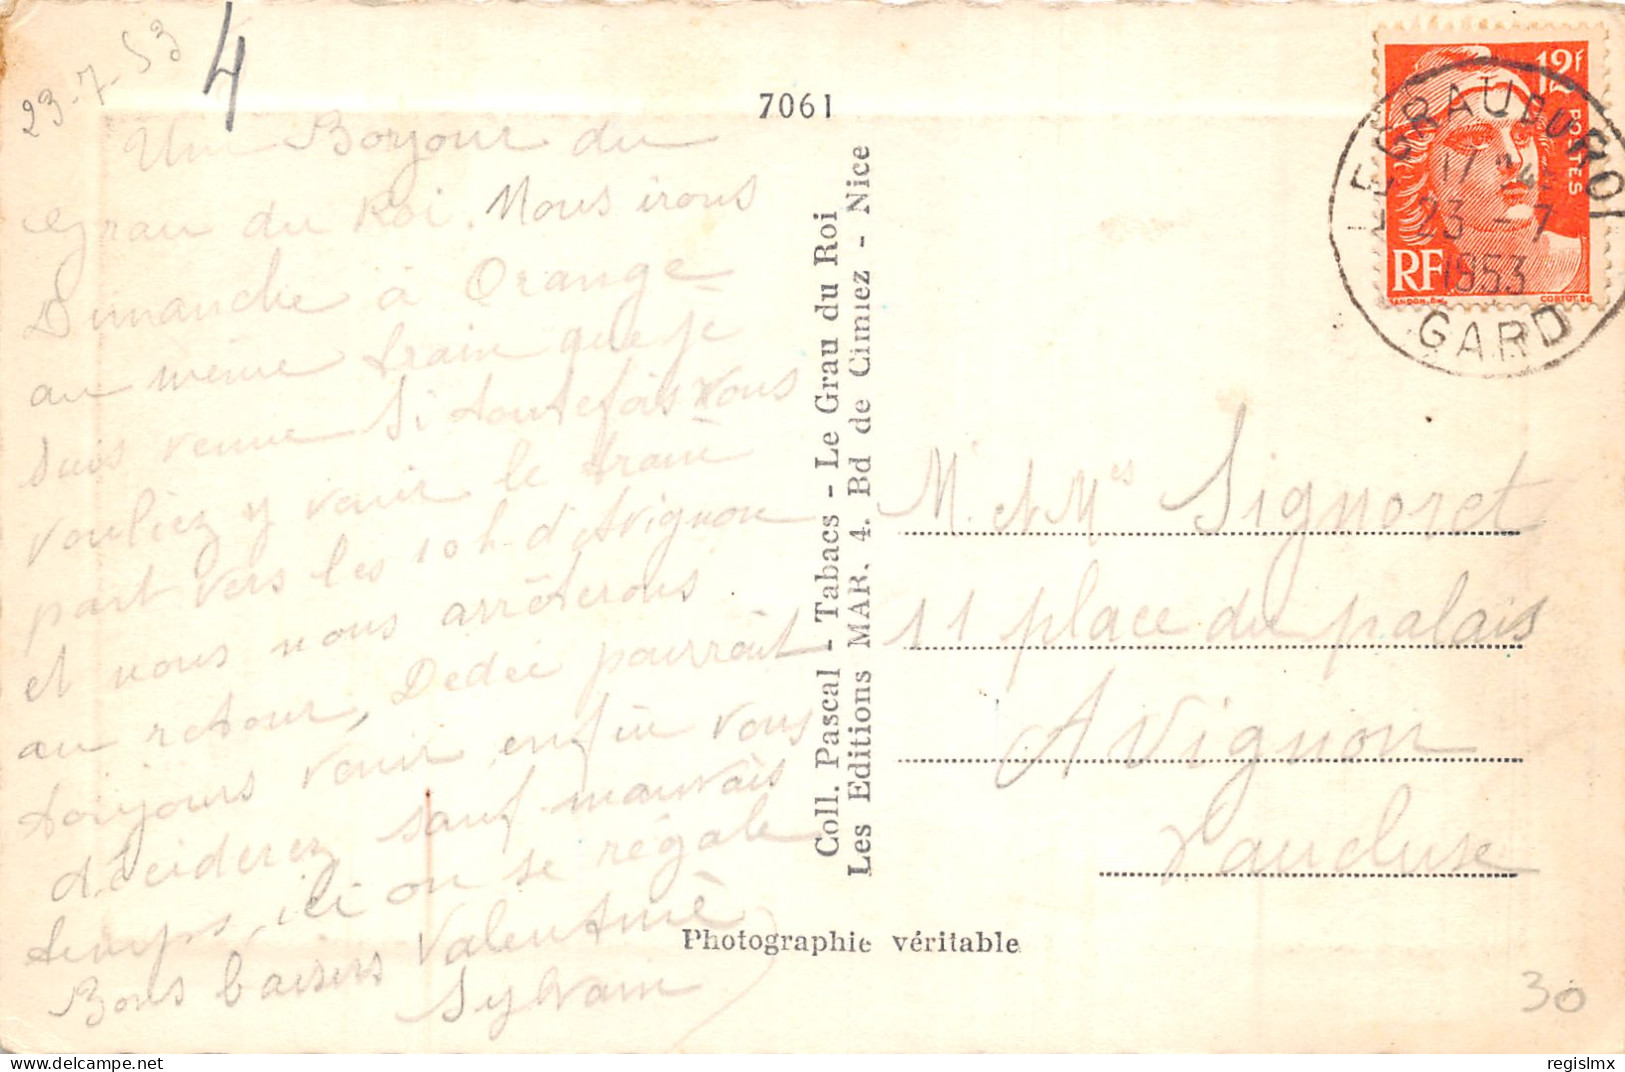 23-7-53
4
7061
Un Bonjour du
Grau du Roi. Nous irons
Dimanche à Orange
au même train que je
suis venue Si toutefois vous
vouliez y venir le train
part vers les 10 h d'Avignon
et nous nous arrêterons
au retour, Dédée pourrait
toujours venir enfin vous
déciderez sauf mauvais
temps, ici on se régale
Bons baisers Valentine
Sylvain
Coll. Pascal - Tabacs - Le Grau du Roi
Les Editions MAR. 4. Bd de Cimiez - Nice
Photographie véritable
12f
POSTES
RF
GANDON, DEL
CORTOT, SC
LE GRAU DU ROI
17 24
23 - 7
1953
GARD
M. et Mes Signoret
11 place du palais
Avignon
Vaucluse
30
delcampe.net
regislmx